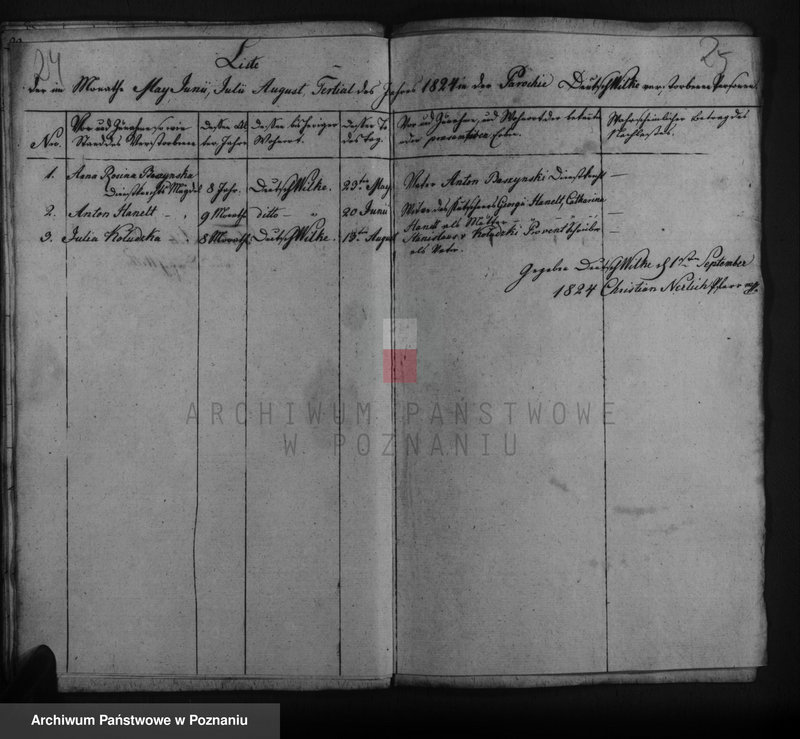 24
25
Liste
der im Monathe May, Junii, Julii August, Tertial des Jahres 1824 in der Parochie Deutsch Wilke verstorbenen Personen.
Nro.
Vor und Zunahme so wie
Stand des Verstorbenen
dessen Al-
ter. Jahre
dessen bisheriger
Wohnort.
dessen To-
des tag.
Vor und Zunahme, und Wohnort der
oder Erben.
Wahrscheinlicher Betrag des
Nachlasses.
1. Anna Baszynska
8 Jahr. Deutsch Wilke. 29ten May Vater Anton Baszynski Dienstknecht —
2. Anton Handt 9 Monath ditto 20 Junii Catharina
Handt als Mutter —
3. Julia Koludzka 8 Monath Deutsch Wilke. 19ten August Stanislaus v Koludzki Provent Schreiber —
als Vater.
Gegeben Deutsch Wilke d 1sten September
1824 Christian Nerlich Pfarr
ARCHIWUM PAŃSTWOWE
W POZNANIU
Archiwum Państwowe w Poznaniu